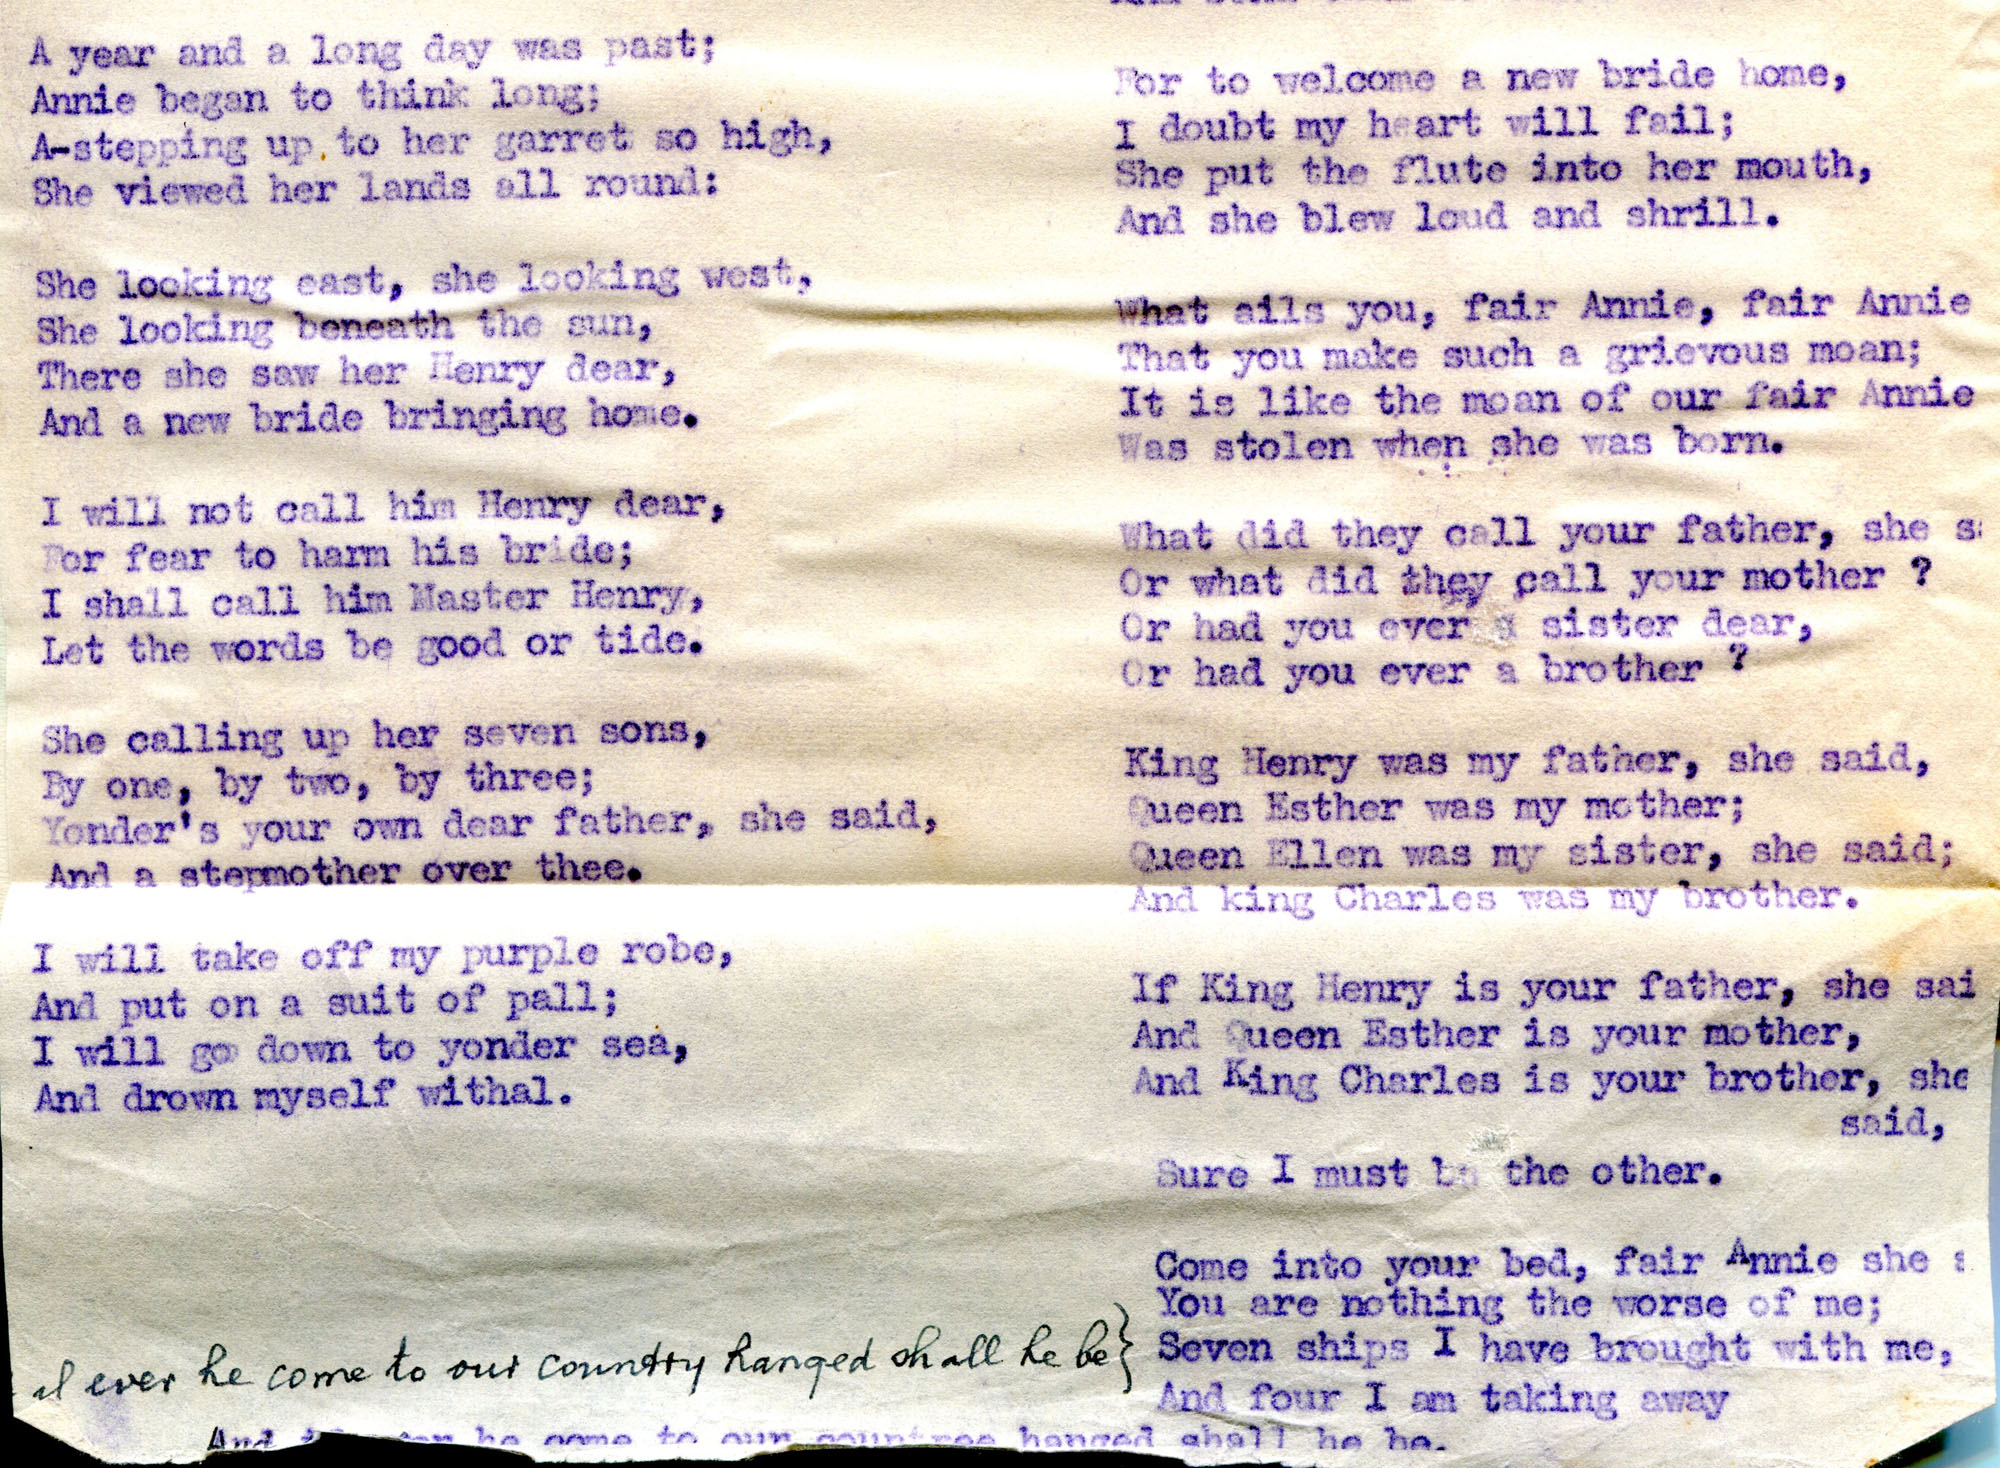 A year and a long day was past;
Annie began to think long;
A-stepping up to her garret so high,
She viewed her lands all round:
She looking east, she looking west,
She looking beneath the sun,
There she saw her Henry dear,
And a new bride bringing home.
I will not call him Henry dear,
For fear to harm his bride;
I shall call him Master Henry,
Let the words be good or tide.
She calling up her seven sons,
By one, by two, by three;
Yonder's your own dear father, she said,
And a stepmother over thee.
I will take off my purple robe,
And put on a suit of pall;
I will go down to yonder sea,
And drown myself withal.
For to welcome a new bride home,
I doubt my heart will fail;
She put the flute into her mouth,
And she blew loud and shrill.
What ails you, fair Annie, fair Annie
That you make such a grievous moan;
It is like the moan of our fair Annie
Was stolen when she was born.
What did they call your father, she s
Or what did they call your mother ?
Or had you ever a sister dear,
Or had you ever a brother ?
King Henry was my father, she said,
Queen Esther was my mother;
Queen Ellen was my sister, she said;
And king Charles was my brother.
If King Henry is your father, she sai
And Queen Esther is your mother,
And King Charles is your brother, she
said,
Sure I must be the other.
Come into your bed, fair Annie she s
You are nothing the worse of me;
Seven ships I have brought with me,
And four I am taking away
ever he come to our country hanged shall he be}
And he come to our countree hanged shall he be.